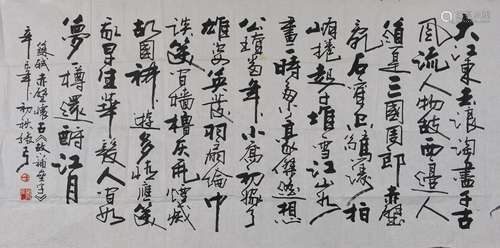 大江東去浪淘盡千古
風流人物故西邊人
道是三國周郎赤壁
乱石穿空驚濤拍
岸捲起千堆雪江山如
畫一時多少豪傑遙想
公瑾當年小喬初嫁了
雄姿英發羽扇綸巾
談笑间檣櫓灰飛煙滅
故國神遊多情應笑
我早生華髮人间如
夢一樽還酹江月
蘇軾赤壁懷古
年初秋